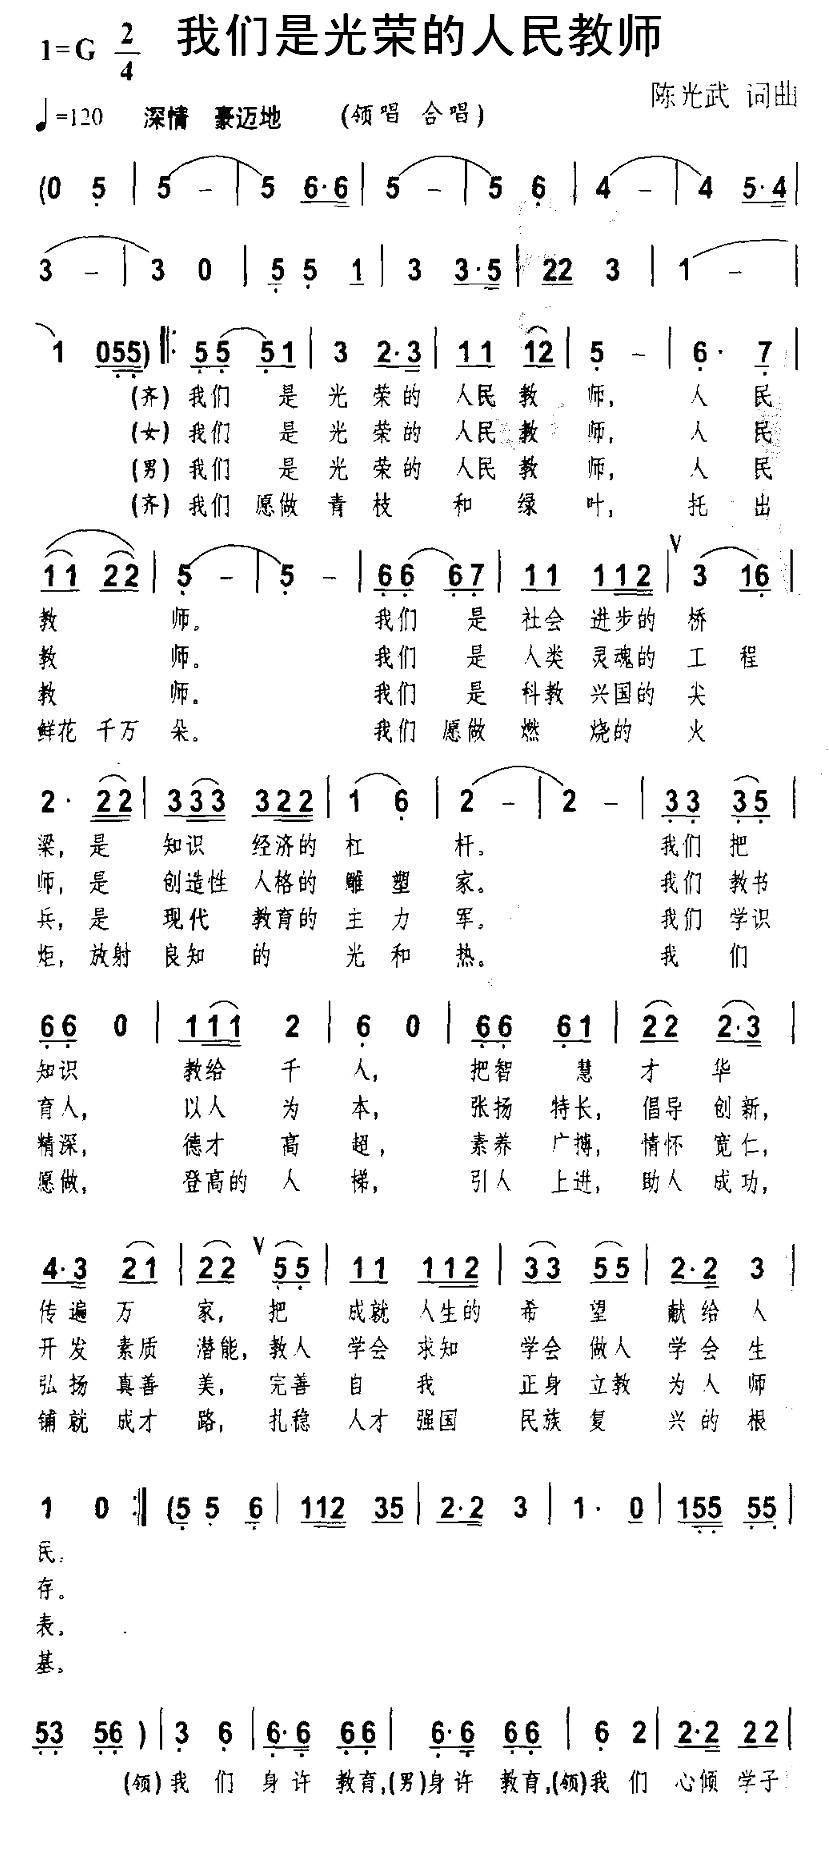 我们是光荣的人民教师
1=G 2/4
陈光武 词曲
♩=120 深情 豪迈地 (领唱 合唱)
(0 5 | 5 - | 5 6·6 | 5 - | 5 6 | 4 - | 4 5·4 |
3 - | 3 0 | 5 5 1 | 3 3·5 | 22 3 | 1 - |
1 055) |: 55 51 | 3 2·3 | 11 12 | 5 - | 6· 7 |
(齐) 我们 是 光 荣的 人民 教 师, 人 民
(女) 我们 是 光 荣的 人民 教 师, 人 民
(男) 我们 是 光 荣的 人民 教 师, 人 民
(齐) 我们 愿做 青 枝 和 绿 叶, 托 出
11 22 | 5 - | 5 - | 66 67 | 11 112 | V 3 16 |
教 师。 我们 是 社会 进步的 桥
教 师。 我们 是 人类 灵魂的 工 程
教 师. 我们 是 科教 兴国的 尖
鲜花 千万 朵。 我们 愿做 燃 烧的 火
2· 22 | 333 322 | 1 6 | 2 - | 2 - | 33 35 |
梁, 是 知识 经济的 杠 杆。 我们 把
师, 是 创造性 人格的 雕 塑 家。 我们 教书
兵, 是 现代 教育的 主 力 军。 我们 学识
炬, 放射 良知 的 光 和 热。 我 们
66 0 | 111 2 | 6 0 | 66 61 | 22 2·3 |
知识 教给 千 人, 把智 慧 才 华
育人, 以人 为 本, 张扬 特长, 倡导 创新,
精深, 德才 高 超, 素养 广搏, 情怀 宽仁,
愿做, 登高的 人 梯, 引人 上进, 助人 成功,
4·3 21 | 22 V 55 | 11 112 | 33 55 | 2·2 3 |
传遍 万 家, 把 成就 人生的 希 望 献给 人
开发 素质 潜能, 教人 学会 求知 学会 做人 学会 生
弘扬 真善 美, 完善 自 我 正身 立教 为人 师
铺就 成才 路, 扎稳 人才 强国 民族 复 兴的 根
1 0 :| (5 5 6 | 112 35 | 2·2 3 | 1· 0 | 155 55 |
民;
存。
表,
基。
53 56 ) | 3 6 | 6·6 66 | 6·6 66 | 6 2 | 2·2 22 |
(领) 我 们 身许 教育, (男) 身许 教育, (领) 我 们 心倾 学子